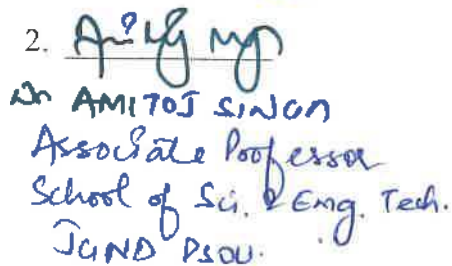 2.
Dr AMITOJ SINGH
Associate Professor
School of Sci. & Emg. Tech.
JGND PSOU.